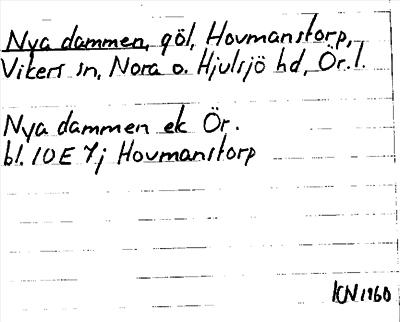 Nya dammen, göl, Hovmanstorp,
Vikers sn, Nora o. Hjulsjö hd, Ör.l.
Nya dammen ek Ör.
bl. 10E 7j Hovmanstorp
KN 1960